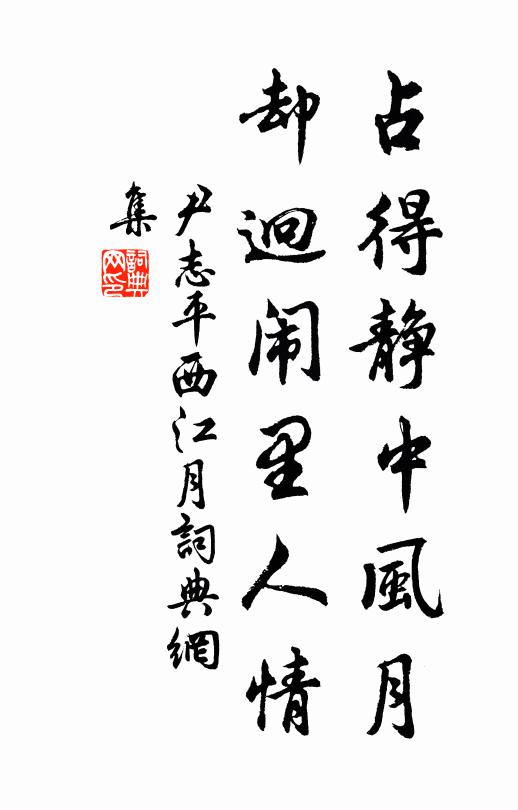 占得静中風月
却迴闹里人情
尹志平西江月詞典網
集
詞典
网印